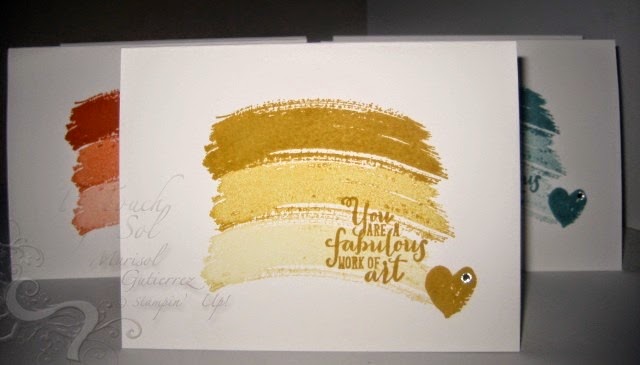 You
ARE A
fabulous
WORK OF
art
Touch
Sol
Marisol
Gutierrez
Stampin' Up!